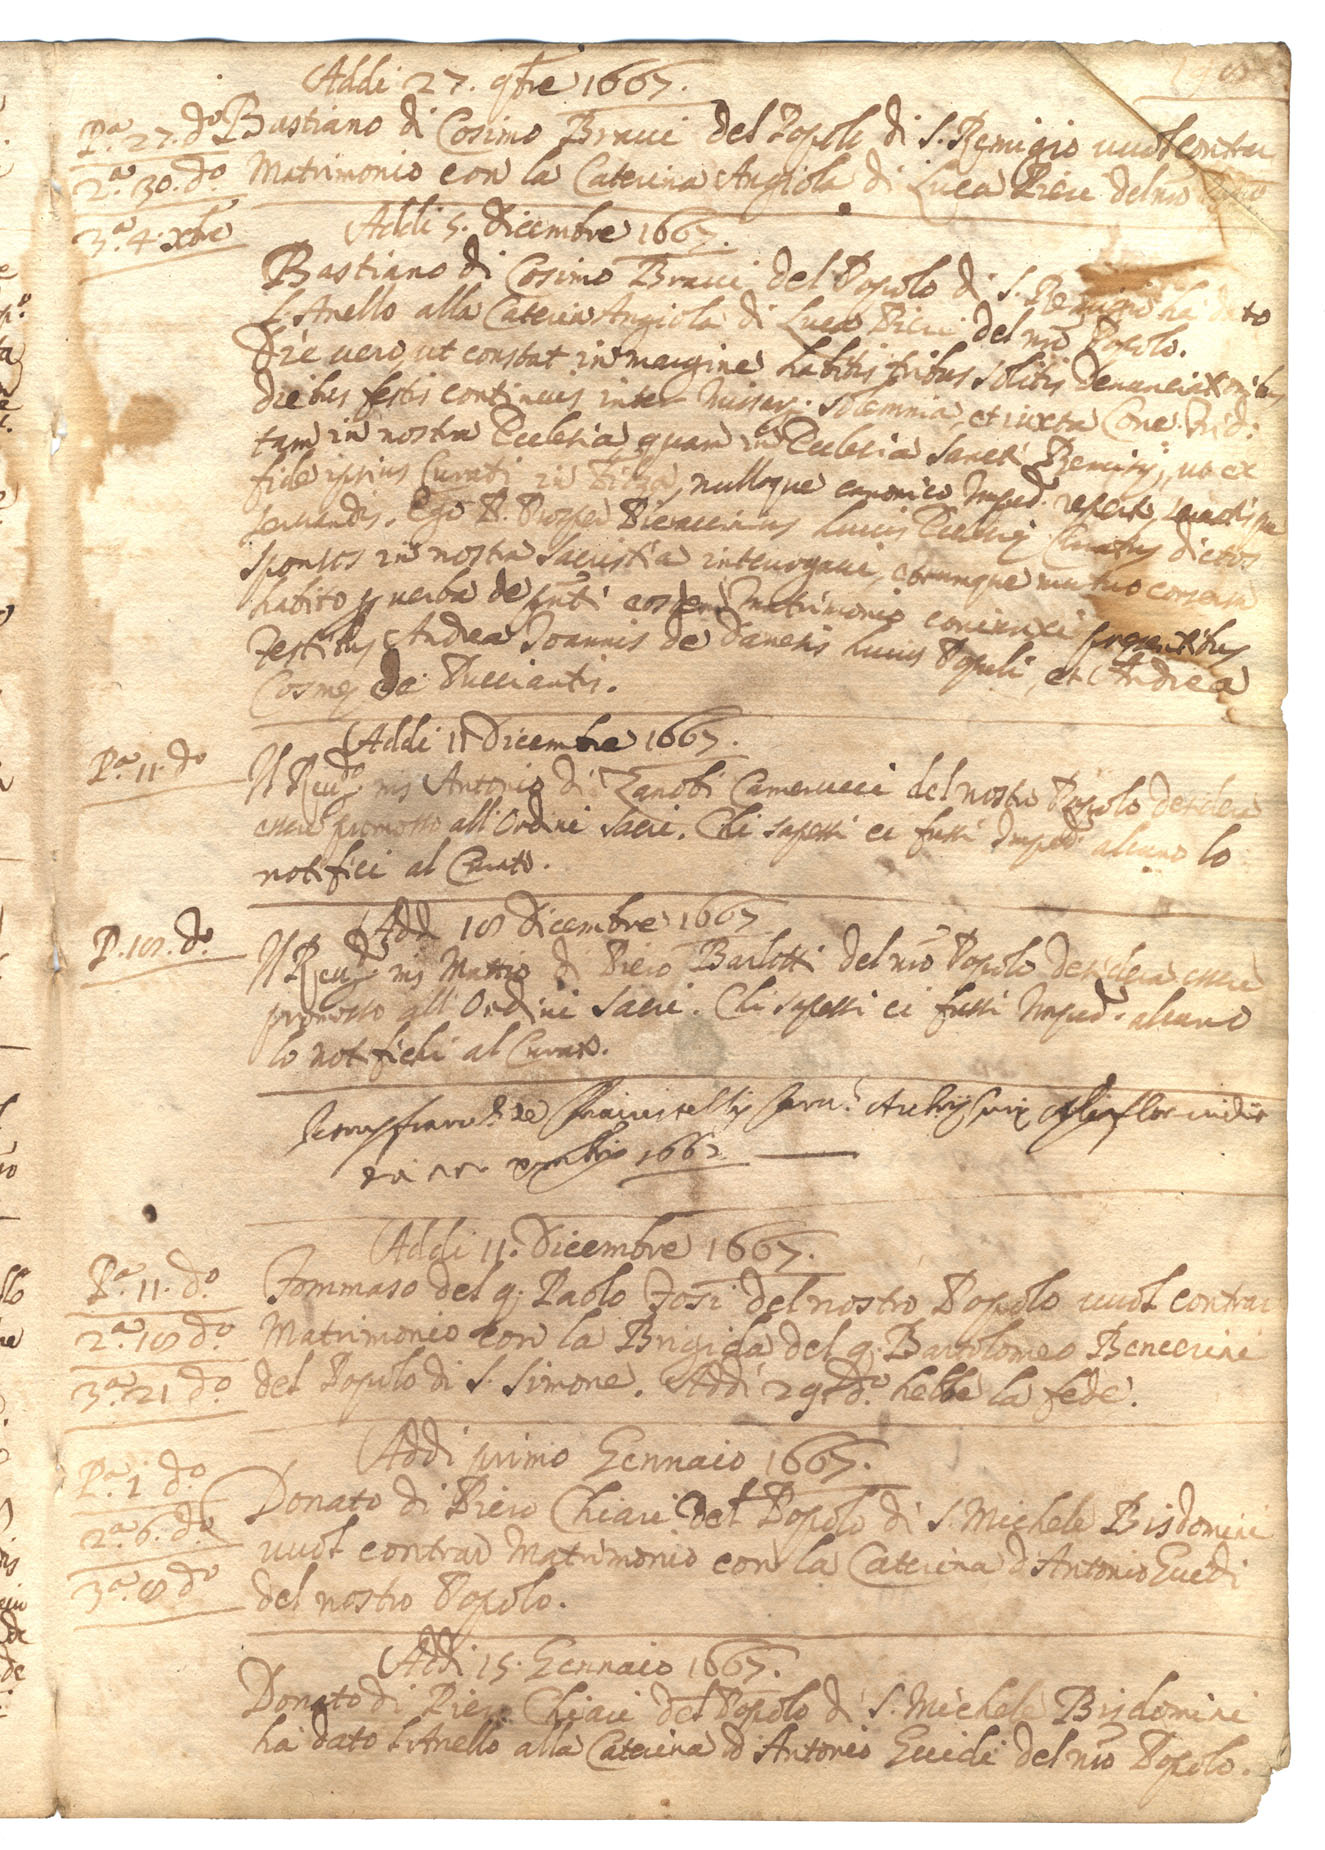 Addi 27. 9bre 1667.
Pª. 27. dº Bastiano di Cosimo Bracci del Popolo di S. Remigio vuol contrar
2ª. 30. dº. Matrimonio con la Caterina Angiola di Luca Pieri del nro
3ª. 4. Xbre
Addi 5. Dicembre 1667.
Bastiano di Cosimo Bracci del Popolo di S. Remigio ha dato
l'Anello alla Caterina Angiola di Luca Pieri del nro Popolo.
Die vero ut constat in margine habitis tribus solitis denunciationibus
diebus festis continuis inter Missar. solemnia, et iuxta Conc. Trid:
tam in nostra Ecclesia, quam in Ecclesia Sancti Remigij, ut ex
fide ipsius Curati in Filza, nulloque canonico Imped. reperto,
servandis. Ego P. Prosper huius Ecclesię Curatus dictos
sponsos in nostra Sacristia interrogavi, eorumque mutuo consensu
habito p verba de pnti eos Matrimonio coniunxi presentibus
Testibus Andrea Joannis de huius Populi, et Andrea
Cosmę de Pucciantis.
Addi 11 Dicembre 1667.
Pª. 11. dº Il Reudº. ms Antonio di Zanobi Camerucci del nostro Popolo desidera
essere promosso all'Ordini Sacri. Chi sapessi ci fussi Imped. alcuno lo
notifici al Curato.
Addi 18 Dicembre 1667
P. 18. dº. Il Reudº ms Matteo di Piero Barlotti del nro Popolo desidera essere
promosso all'Ordini Sacri. Chi sapessi ci fussi Imped. alcuno
lo notifichi al Curato.
1667
Addi 11. Dicembre 1667.
Pª. 11. dº. Tommaso del q. Paolo Tosi del nostro Popolo vuol contrar
2ª. 18 dº. Matrimonio con la Brigida del q. Bartolomeo Bencerini
3ª. 21 dº. del Popolo di S. Simone. Addi 29 dº. hebbe la fede.
Addi primo Gennaio 1667.
Pª. 1 dº. Donato di Piero Chiari del Popolo di S. Michele Bisdomini
2ª. 6. dº. vuol contrar Matrimonio con la Caterina d'Antonio Guidi
3ª. 8 dº del nostro Popolo.
Addi 15. Gennaio 1667.
Donato di Piero Chiari del Popolo di S. Michele Bisdomini
ha dato l'Anello alla Caterina d'Antonio Guidi del nro Popolo.